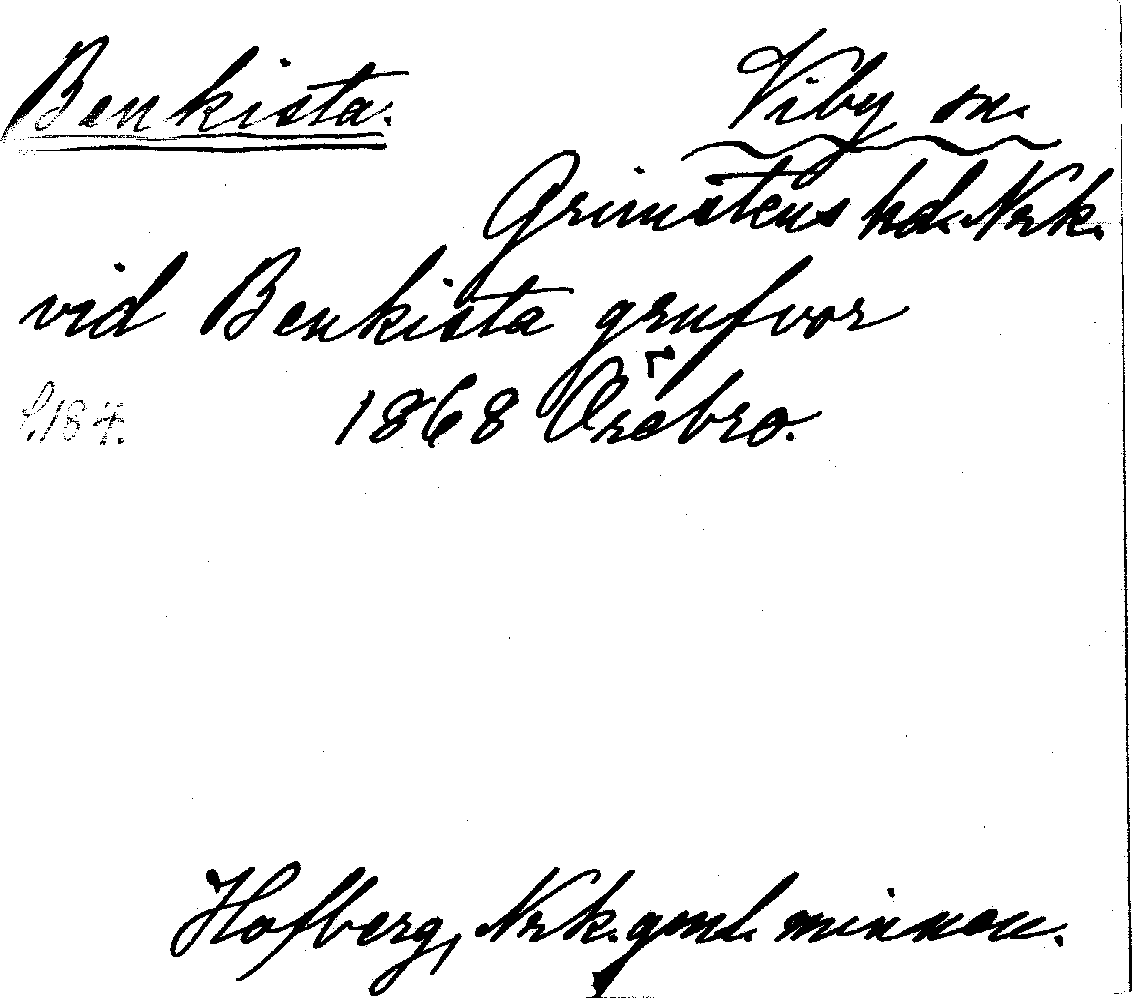 Benkista.
Viby sn.
Grimstens hd. Nrk.
vid Benkista grufvor
s. 184. 1868 Örebro.
Hofberg, Nrk. gml. minnen.